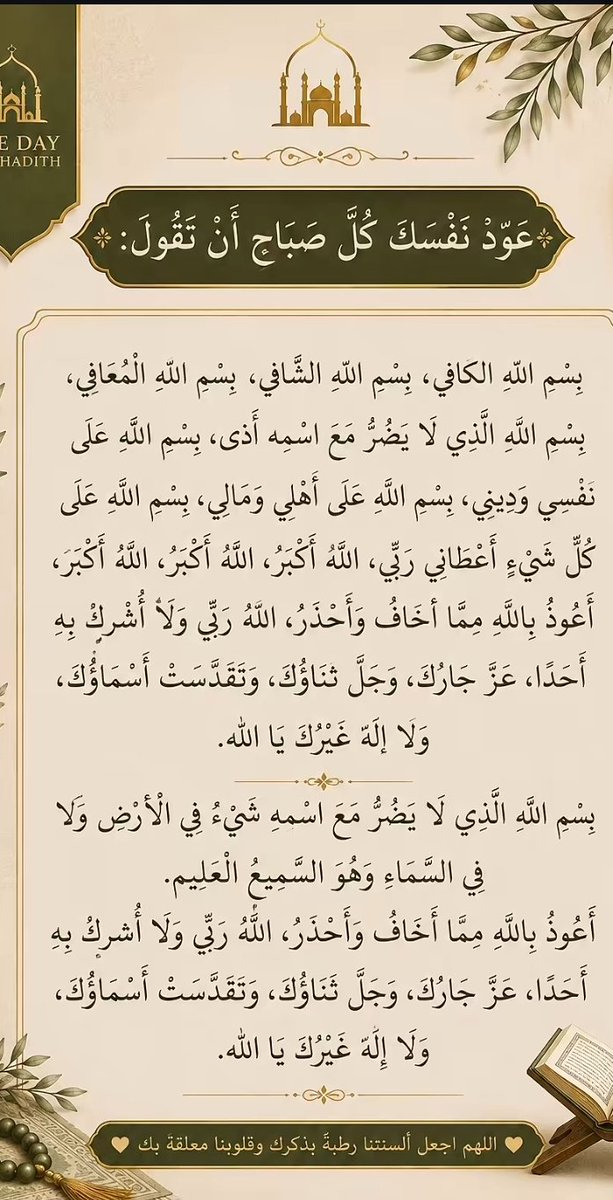 E DAY
HADITH
عَوّذْ نَفْسَكَ كُلَّ صَبَاحٍ أَنْ تَقُولَ:
بِسْمِ اللّهِ الكَافي، بِسْمِ اللّهِ الشَّافي، بِسْمِ اللّهِ الْمُعَافِي،
بِسْمِ اللَّهِ الَّذِي لَا يَضُرُّ مَعَ اسْمِه أَذى، بِسْمِ اللَّهِ عَلَى
نَفْسِي وَدِينِي، بِسْمِ اللَّهِ عَلَى أَهْلِي وَمَالِي، بِسْمِ اللَّهِ عَلَى
كُلِّ شَيْءٍ أَعْطَانِي رَبِّي، اللَّهُ أَكْبَرُ، اللَّهُ أَكْبَرُ، اللَّهُ أَكْبَرَ،
أَعُوذُ بِاللَّهِ مِمَّا أخَافُ وَأَحْذَرُ، اللَّهُ رَبِّي وَلَا أُشْرِكُ بِهِ
أَحَدًا، عَزَّ جَارُكَ، وَجَلَّ ثنَاؤُكَ، وَتَقَدَّسَتْ أَسْمَاؤُكَ،
وَلَا إلَهّ غَيْرُكَ يَا الله.
بِسْمِ اللَّهِ الَّذِي لَا يَضُرُّ مَعَ اسْمهِ شَيْءُ فِي الْأرْضِ وَلا
فِي السَّمَاءِ وَهُوَ السَّمِيعُ الْعَلِيم.
أَعُوذُ بِاللَّهِ مِمَّا أَخَافُ وَأَحْذَرُ، اللَّهُ رَبِّي وَلَا أُشرِكُ بِهِ
أَحَدًا، عَزَّ جَارُكَ، وَجَلَّ ثَنَاؤُكَ، وَتَقَدَّسَتْ أَسْمَاؤُكَ،
وَلَا إِلَهّ غَيْرُكَ يَا الله.
اللهم اجعل ألسنتنا رطبةً بذكرك وقلوبنا معلقةً بك